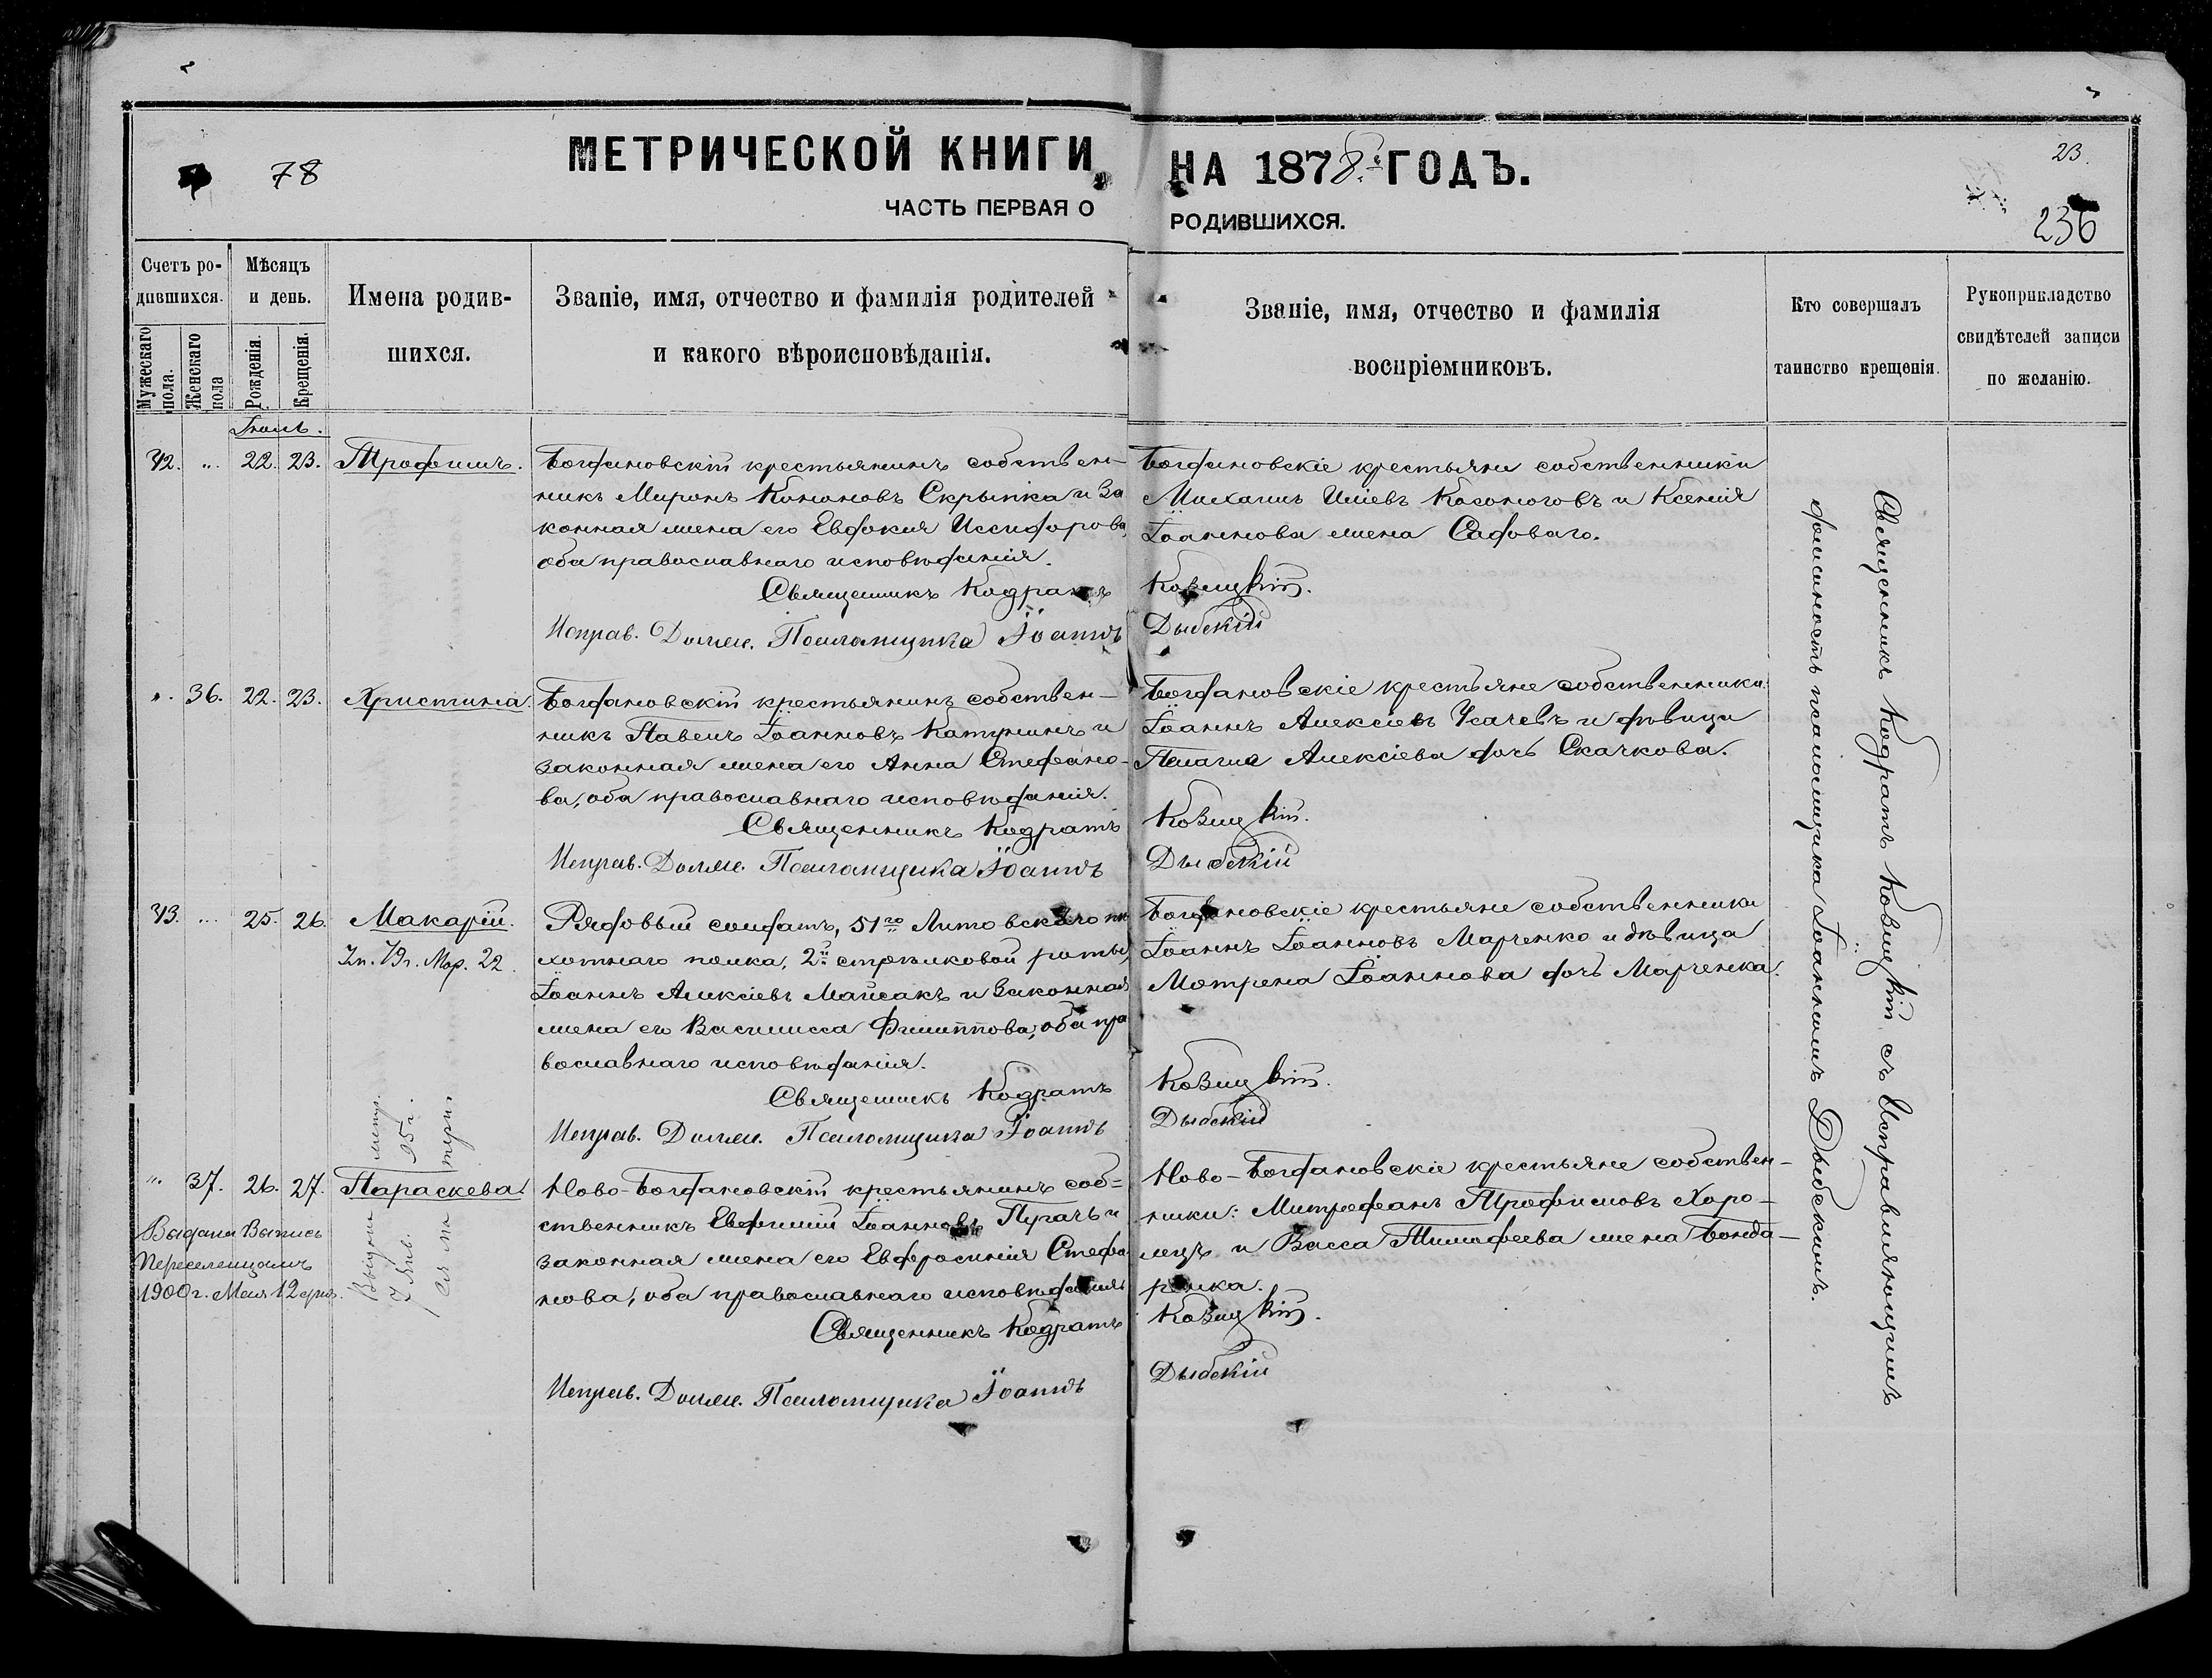 78
МЕТРИЧЕСКОЙ КНИГИ НА 1878й ГОДЪ.
23.
236
ЧАСТЬ ПЕРВАЯ О РОДИВШИХСЯ.
Счетъ родившихся.
Мужескаго пола.
Женскаго пола
Мѣсяцъ и день.
Рожденія.
Крещенія.
Имена родившихся.
Званіе, имя, отчество и фамилія родителей
и какого вѣроисповѣданія.
Званіе, имя, отчество и фамилія
воспріемниковъ.
Кто совершалъ
таинство крещенія.
Рукоприкладство
свидѣтелей записи
по желанію.
42. „ 22. 23. Трофимъ.
Богдановскій крестьянинъ собствен-
никъ Миронъ Кононовъ Скрыпка и за
конная жена его Евдокия
оба православнаго исповѣданія.
Священникъ Кодратъ
Исправ. Должн. Псаломщика Іоаннъ
Богдановскіе крестьяне собственники
Михаилъ Косоноговъ и Ксенія
Іоаннова жена Садоваго.
Ковицкій.
Дыбскій
„ 36. 22. 23. Христина.
Богдановскій крестьянинъ собствен-
никъ Павелъ Іоанновъ и
законная жена его Анна Стефано-
ва, оба православнаго исповѣданія.
Священникъ Кодратъ
Исправ. Должн. Псаломщика Іоаннъ
Богдановскіе крестьяне собственники
Іоаннъ Алексіевъ Усачевъ и дѣвица
Алексіева дочь Скачкова.
Ковицкій.
Дыбскій
43. „ 25. 26. Макарій.
79г. Мар. 22.
Рядовый солдатъ, 51го Литовскаго пѣ
хотнаго полка, 2й стрѣлковой роты,
Іоаннъ Алексіевъ Майсакъ и законная
жена его Василисса Филиппова, оба пра
вославнаго исповѣданія.
Священникъ Кодратъ
Исправ. Должн. Псаломщика Іоаннъ
Богдановскіе крестьяне собственники
Іоаннъ Іоанновъ Марченко и дѣвица
Мотрена Іоаннова дочь Марченка.
Ковицкій.
Дыбскій
„ 37. 26. 27. Параскева.
Выдана Выпись
Переселенцамъ
1900г. Мая 12
метр.
7 Янв. 95г.
Ново-Богдановскій крестьянинъ соб-
ственникъ Евфимій Іоанновъ Пугачъ и
законная жена его Евфросинія Стефа
нова, оба православнаго исповѣданія
Священникъ Кодратъ
Исправ. Должн. Псаломщика Іоаннъ
Ново-Богдановскіе крестьяне собствен-
ники: Митрофанъ Трофимовъ Харо-
и Васса Тимофеева жена Бонда-
ренка.
Ковицкій.
Дыбскій
Священникъ Кодратъ Ковицкій съ Исправляющимъ
должность псаломщика Іоанномъ Дыбскимъ.